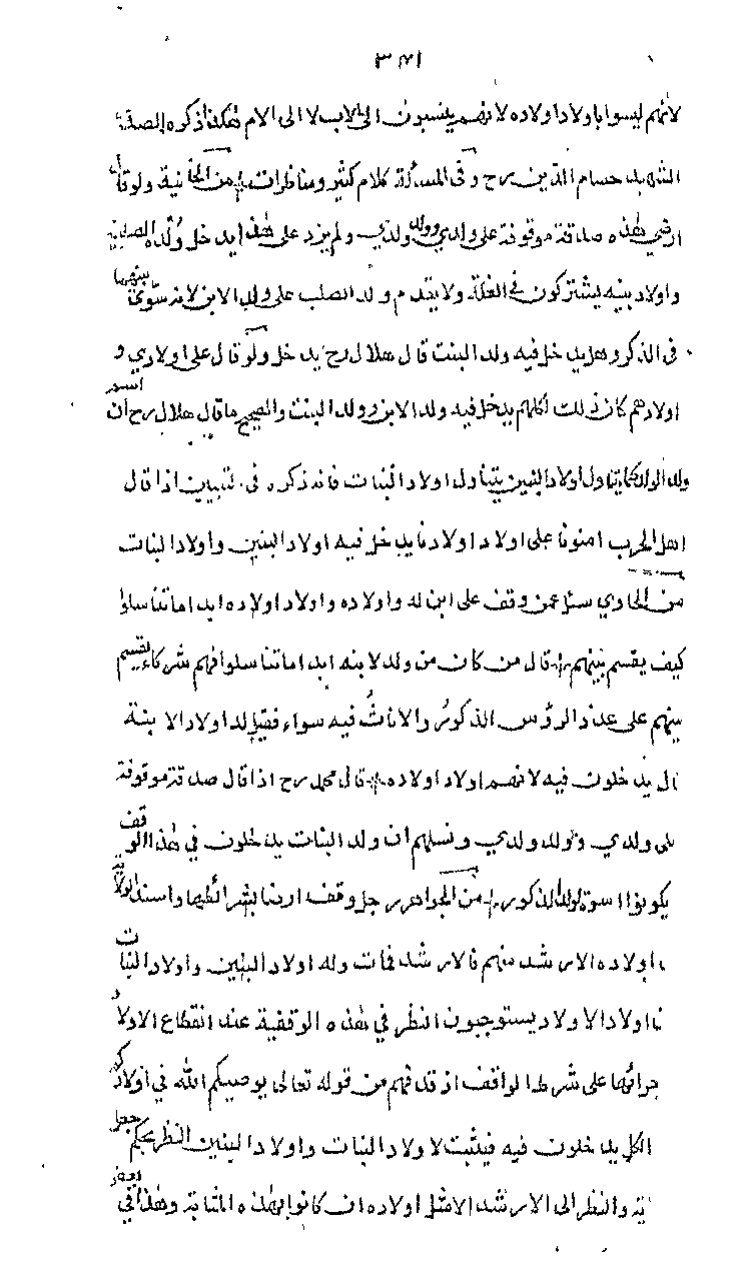 ٣٤١
لانهم ليسوا باولاد اولاده لانهم ينسبون الى الاب لا الى الام هكذا ذكره الصدر
الشهيد حسام الدين رح وفى المسألة كلام كثير ومناظرات من الخانية ولو قال
ارضي هذه صدقة موقوفة على ولدي وولد ولدي ولم يزد على هذا يدخل ولده الصلبية
واولاد بنيه يشتركون في الغلة ولا يقدم ولد الصلب على ولد الابن لانه سوى بينهما
فى الذكر وهل يدخل فيه ولد البنت قال هلال رح يدخل ولو قال على اولادي و
اولادهم كان ذلك لكلهم يدخل فيه ولد الابن وولد البنت والصحيح ما قال هلال رح ان اسم
ولد الولد كما يتناول اولاد البنين يتناول اولاد البنات فانه ذكره فى اذا قال
اهل الحرب امنونا على اولاد اولادنا يدخل فيه اولاد البنين واولاد البنات
من الحاوي سئل عمن وقف على ابن له واولاده واولاد اولاده ابدا ما تناسلوا
كيف يقسم بينهم قال من كان من ولد لابنه ابدا ما تناسلوا فهم شركاء يقسم
بينهم على عدد الرؤس الذكور والاناث فيه سواء فقيل له اولاد الابنة
قال يدخلون فيه لانهم اولاد اولاده قال محمد رح اذا قال صدقة موقوفة
على ولدي وولد ولدي ونسلهم ان ولد البنات يدخلون في هذا الوقف
يكونوا اسوة لولد الذكور من الجواهر رجل وقف ارضا بشرائطها واسند الولاية
اولاده الارشد منهم فالارشد فمات وله اولاد البنين واولاد البنات
اولاد الاولاد يستوجبون النظر في هذه الوقفية عند انقطاع الاولاد
على شرط الواقف اذ قد فهم من قوله تعالى يوصيكم الله في اولادكم
الكل يدخلون فيه فيثبت لاولاد البنات واولاد البنين النظر بحكم جعل
والنظر الى الارشد الامثل اولاده ان كانوا بهذه المثابة وهذا في